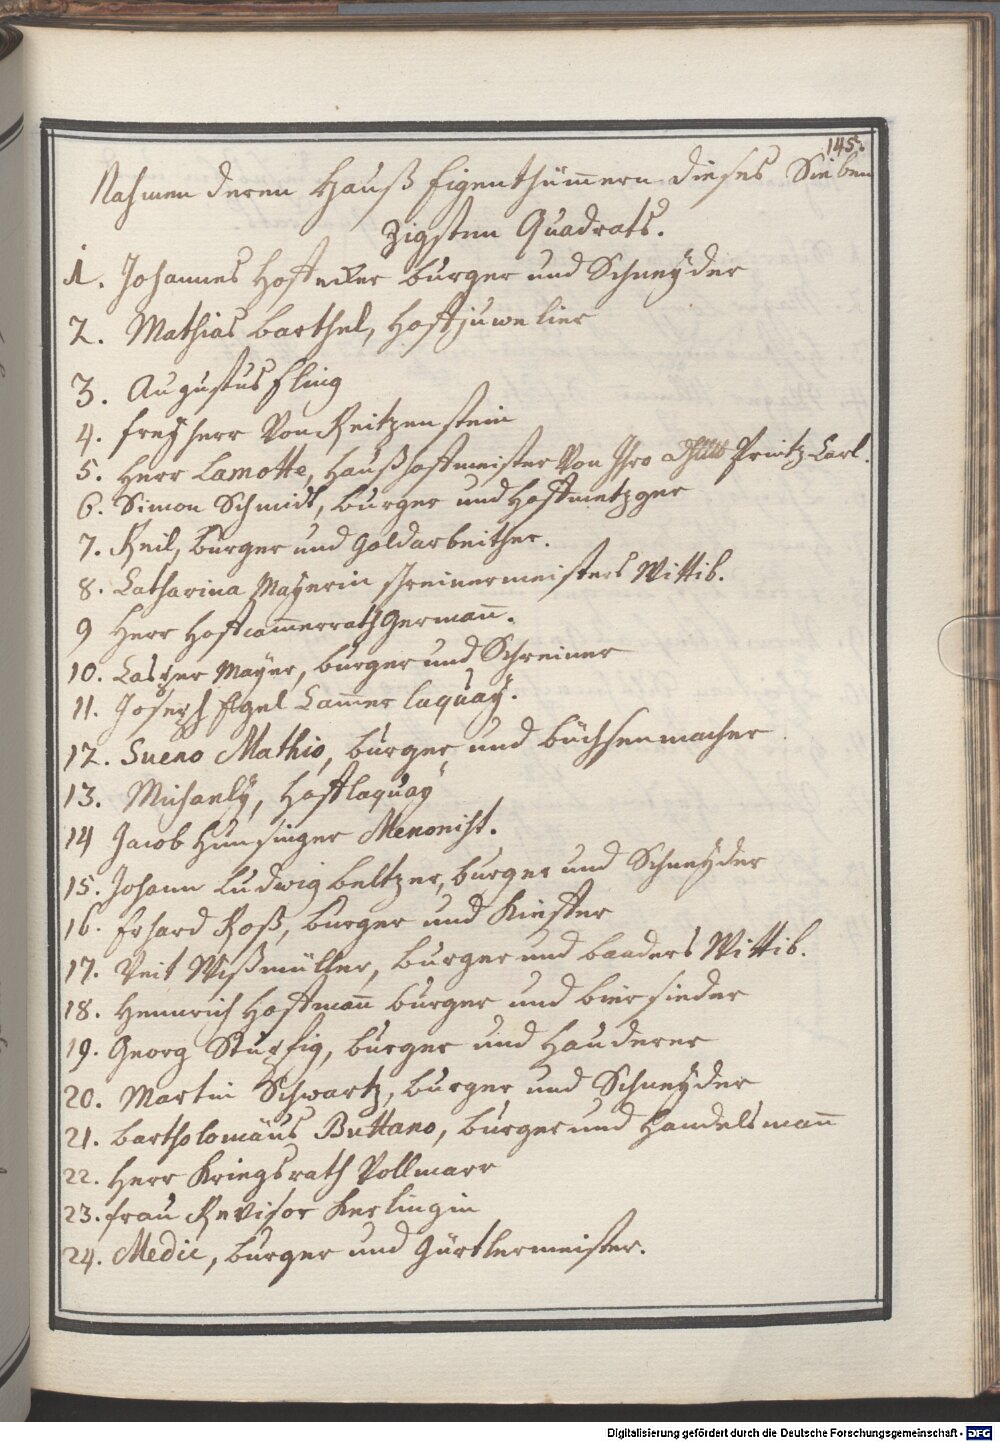 145.
Nahmen deren Hauß Eigenthümern dieses Sieben
zigsten Quadrats.
1. Johannes Hoffecker burger und Schneyder
2. Mathias barthel, Hoffjuwelier
3. Augustus Eling
4. freyherr Von Reitzenstein
5. Herr Lamotte, Haußhoffmeister Von Ihro Printz Carl.
6. Simon Schmidt, burger und Hoffmetzger
7. Keil, burger und Goldarbeither.
8. Catharina Mayerin schreinermeisters Wittib.
9 Herr Hoffcam̅errath German̅.
10. Casper Mayer, burger und Schreiner
11. Joseph Egel Cam̅er laquay.
12. Sueno Mathio, burger und büchsenmacher
13. Michaely, Hofflaquay
14 Jacob Hunsinger Menonist.
15. Johann Ludwig beltzer, burger und Schneyder
16. Erhard Roß, burger und Kieffer
17. Veit Wißmüller, burger und baaders Wittib.
18. Hennrich Hoffman̅ burger und biersieder
19. Georg, burger und Hauderer
20. Martin Schwartz, burger und Schneyder
21. bartholomäus Buttano, burger und Handelsman̅
22. Herr Kriegsrath Vollmarr
23. frau Revisor Kerlingin
24. Medic, burger und Gürtlermeister.
Digitalisierung gefördert durch die Deutsche Forschungsgemeinschaft - DFG